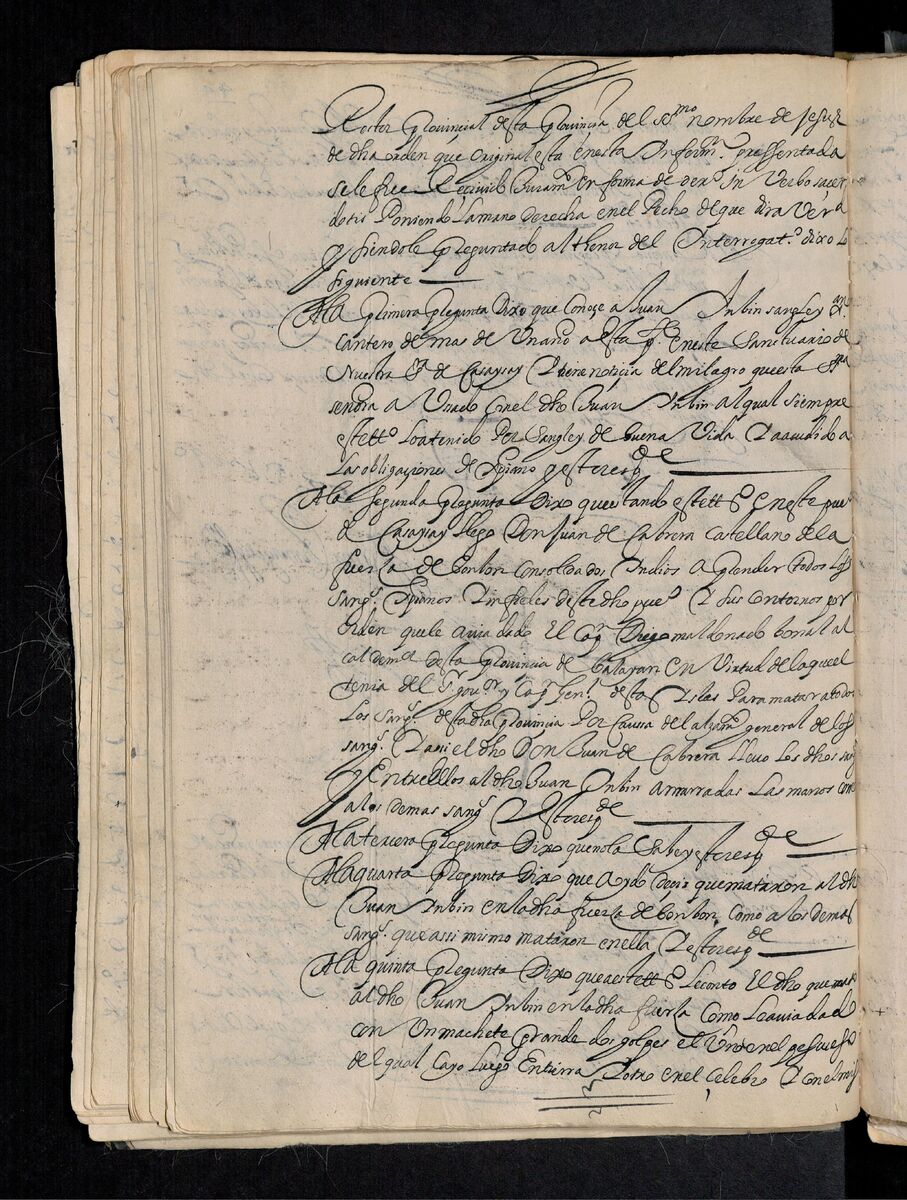 Rector Provincial desta Provincia del SSmo nombre de Jesus
de dha orden que original esta enesta Informn. pressentada
sele fue Recivido Juramto en forma de derº in Verbo sacer
dotis Poniendo La mano derecha en el Pecho de que dira Verd
y siendole Preguntado al thenor del Interrogatº. dixo lo
siguiente
A la Primera Pregunta Dixo que conoçe a Juan Inbin sangley
cantero de mas de Un año a esta pte eneste Sanctuario de
Nuestra Sª de Casaysay Y tiene noticia del milagro que esta
señora a Usado con el dho Juan Inbin al qual siempre
este ttº lo a tenido Por Sangley de buena Vida Y a acudido a
Las obligaçiones de Xpiano y esto respde
A la segunda Pregunta Dixo que estando este ttº eneste pueº
de Casaysay llego Don Juan de Cabrera Castellano de la
fuerza de bonbon con soldados Indios a Prender todos los
sangs. Xpianos Y infieles deste dho pueº Y sus contornos por
orden que le avia dado El Capn Diego maldonado bonal al
calde mor desta Provincia de balayan en Virtud de la que el
tenia del Sr. gour y Capn Genl. destas Yslas Para matar a todos
Los sangs. desta dha Provincia Por caussa del alzamto general de los
sangs. Y ansi el dho Don Juan de Cabrera llevo Los dhos sangs
y Entre ellos al dho Juan Inbin amarradas Las manos como
a los demas sangs Y esto respde
A la tercera Pregunta Dixo que no la Sabe y esto respde
A la quarta Pregunta Dixo que a oydo Decir que mataron al dho
Juan Inbin en la dha fuerza de bonbon como a los demas
sangs. que assi mismo mataron en ella Y esto respde
A la quinta Pregunta Dixo que a este ttº Le conto El dho
al dho Juan Inbin en la dha fuerza como Le avia dado
con Un machete Grande dos golpes el Uno en el pescueso
del qual cayo Luego En tierra Y otro en el celebro Y con el